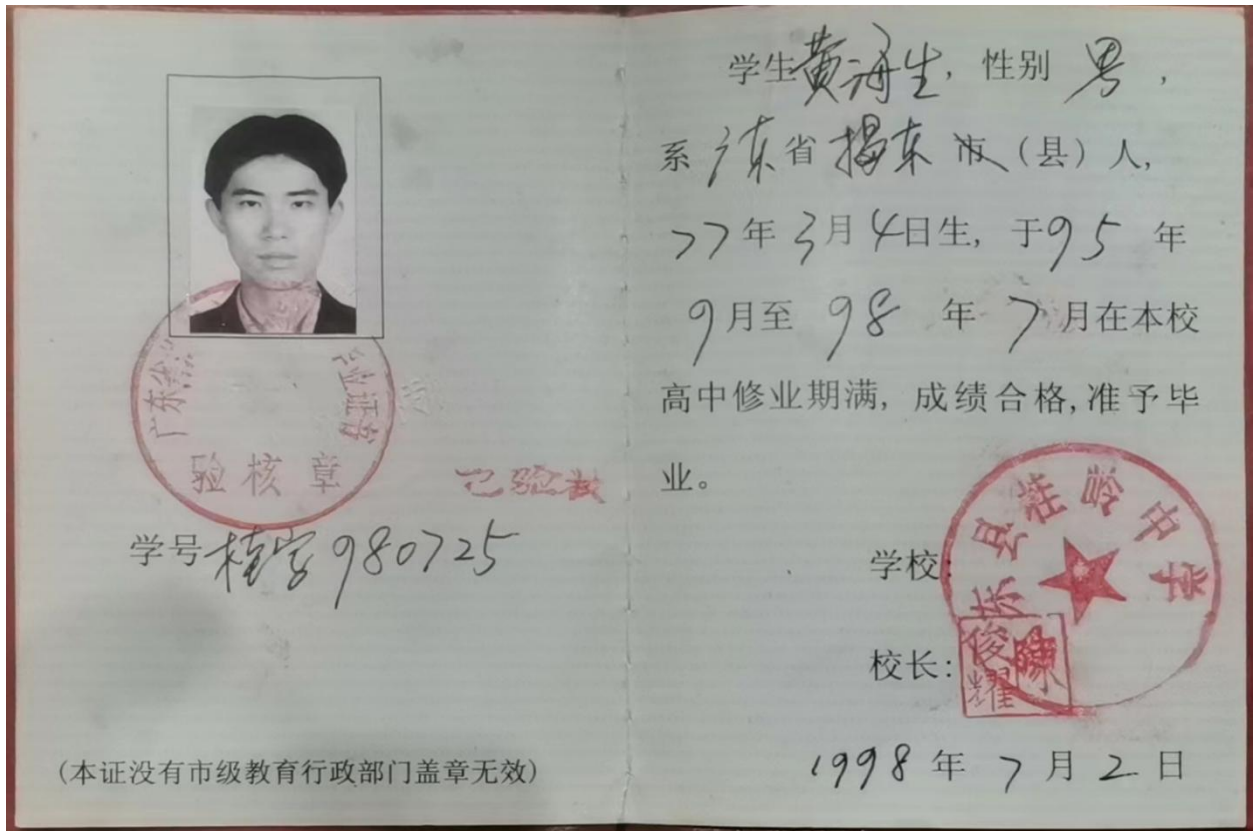 广东省
业证书
验核章
已验放
学号 桂字980725
(本证没有市级教育行政部门盖章无效)
学生黄海生, 性别 男,
系 广东省揭东市(县)人,
77年3月4日生, 于95年
9月至98年7月在本校
高中修业期满, 成绩合格,准予毕
业。
学校:
东县桂岭中学
校长:
陈俊耀
1998年7月2日